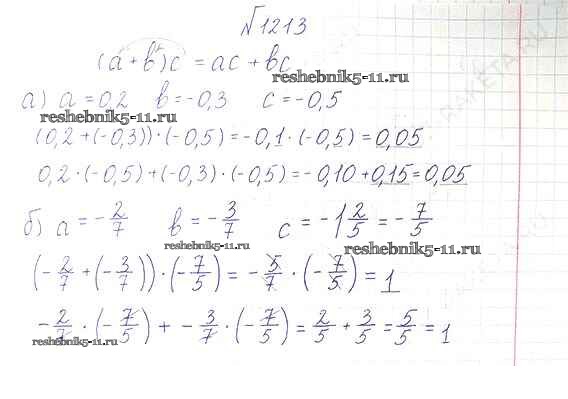 №1213
(a+b)c = ac + bc
reshebnik5-11.ru
a) a = 0,2 b = -0,3 c = -0,5
reshebnik5-11.ru
(0,2 + (-0,3)) · (-0,5) = -0,1 · (-0,5) = 0,05
0,2 · (-0,5) + (-0,3) · (-0,5) = -0,10 + 0,15 = 0,05
б) a = -2/7 b = -3/7 c = -1 2/5 = -7/5
reshebnik5-11.ru
reshebnik5-11.ru
(-2/7 + (-3/7)) · (-7/5) = -5/7 · (-7/5) = 1
-2/7 · (-7/5) + -3/7 · (-7/5) = 2/5 + 3/5 = 5/5 = 1
reshebnik5-11.ru